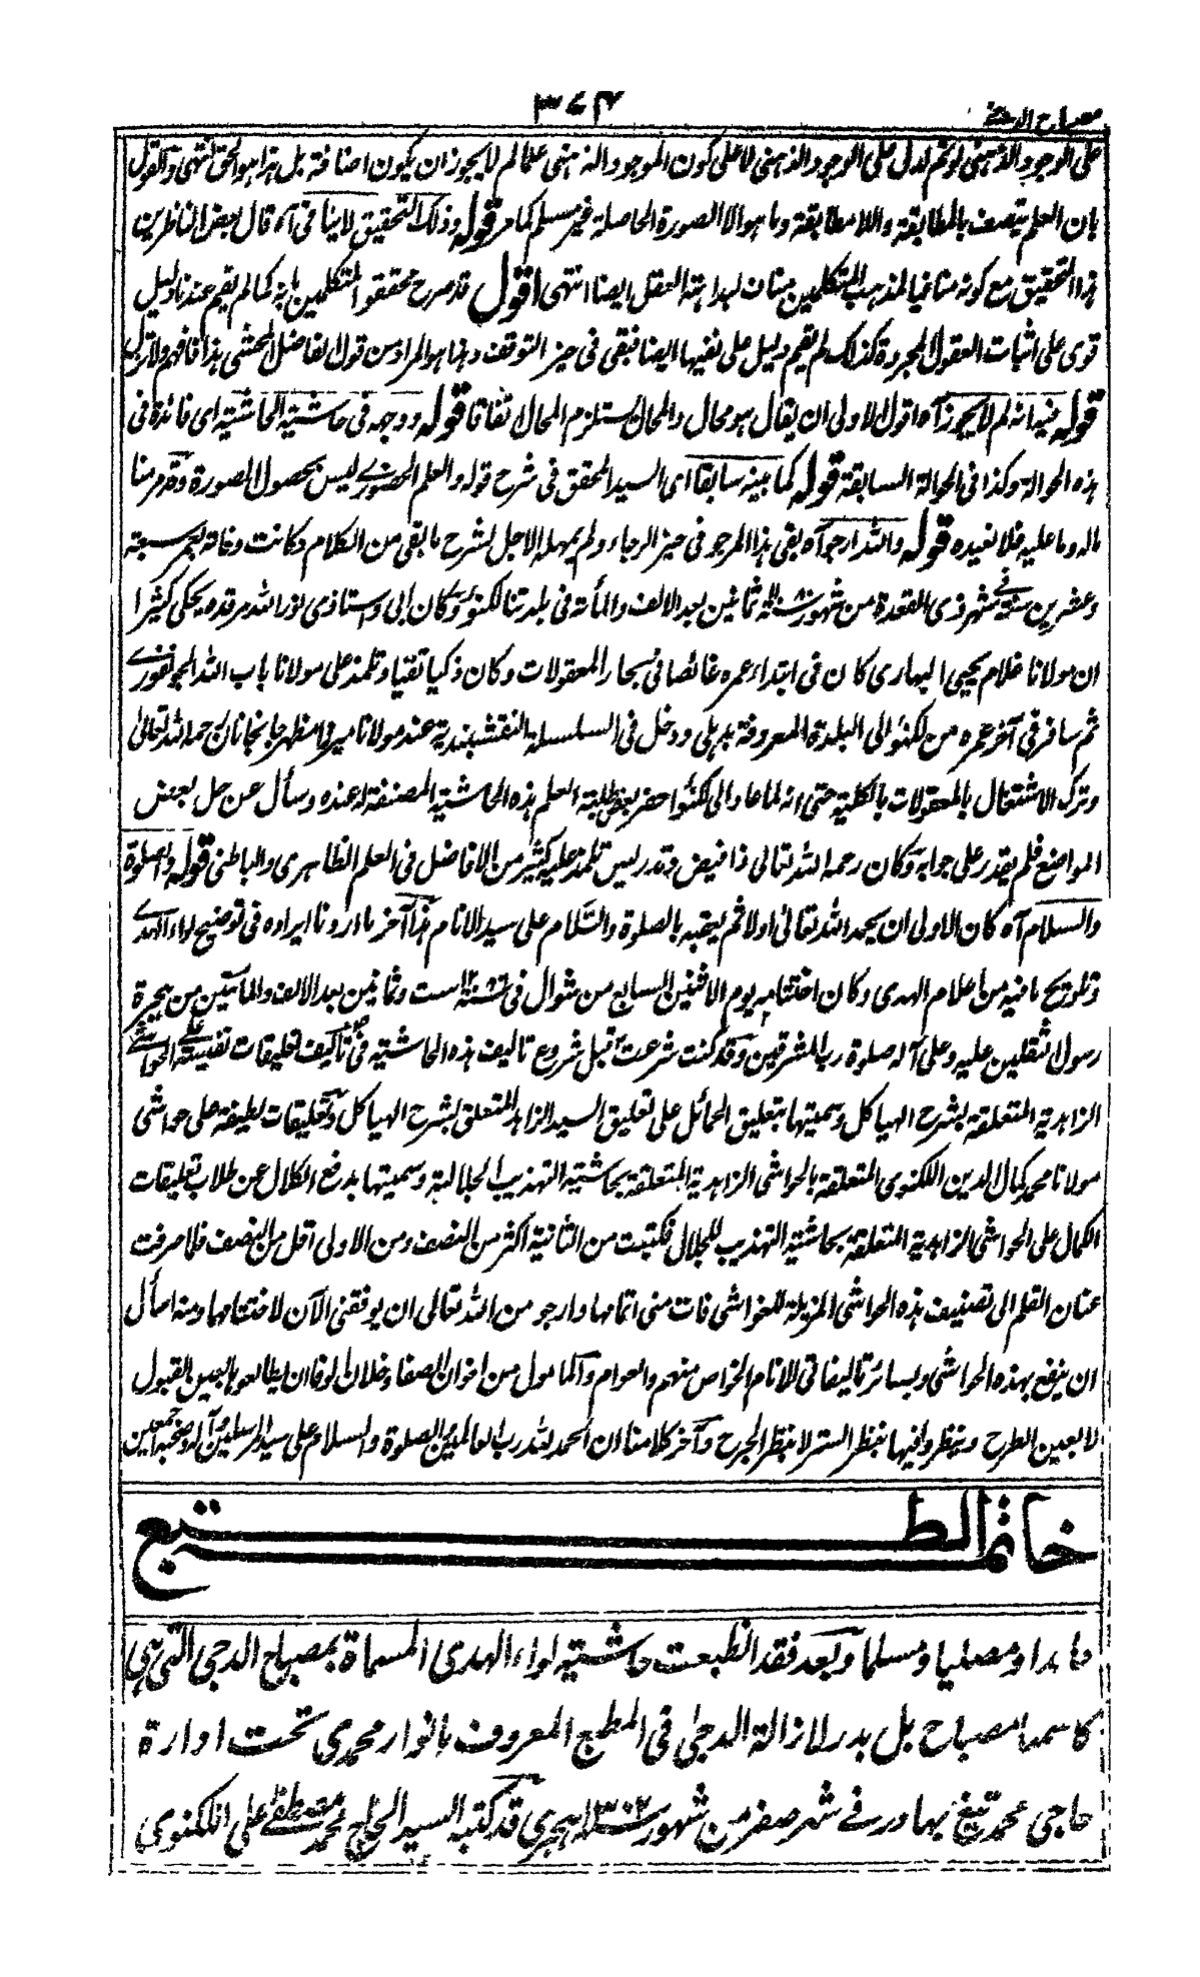 مصباح الدجى
٣٧٤
على الوجود الذهنى لو تم لدل على الوجود الذهنى لا على كون الموجود الذهنى علما لم لا يجوز ان يكون اضافة بل هذا هو الحق انتهى والقول
بان العلم يتصف بالمطابقة واللا مطابقة وما هو الا الصورة الحاصلة غير مسلم كما مر قوله وذلك التحقيق لا ينافى آه قال بعض الناظرين
هذا التحقيق مع كونه منافيا لمذهب المتكلمين مناف لبداهة العقل ايضا انتهى اقول قد صرح محققوا المتكلمين بانه كما لم يقم عندنا دليل
قوى على اثبات العقول المجردة كذلك لم يقم دليل على نفيها ايضا فبقى فى حيز التوقف وهذا هو المراد من قول الفاضل المحشى هذا فافهم ولا تزل
قوله فيه انه لم لا يجوز آه اقول الاولى ان يقال هو محال والمحال يستلزم المحال اتفاقا قوله ووجهه فى حاشية الحاشية اى فائدة فى
هذه الحوالة وكذا فى الحوالة السابقة قوله كما بينه سابقا اى السيد المحقق فى شرح قوله والعلم الحضورى ليس بحصول الصورة وقد مر منا
ماله وما عليه فلا نعيده قوله والله ارجو آه بقى هذا المرجو فى حيز الرجاء ولم يمهله الاجل لشرح ما بقى من الكلام وكانت وفاته بعمر سبعة
وعشرين سنة فى شهر ذى القعدة من شهور سنة ثمانين بعد الالف والمأة فى بلدتنا لكنؤ وكان ابى واستاذى نور الله مرقده يحكى كثيرا
ان مولانا غلام يحيى البهارى كان فى ابتداء عمره غائصا فى بحار المعقولات وكان ذكيا تقيا وتلمذ على مولانا باب الله الجونفورى
ثم سافر فى آخر عمره من لكنؤ الى البلدة المعروفة بدهلى ودخل فى السلسلة النقشبندية عند مولانا ميرزا مظهر جانجانان رحمه الله تعالى
وترك الاشتغال بالمعقولات بالكلية حتى انه لما عاد الى لكنؤ احضر بعض طلبة العلم هذه الحاشية المصنفة له عنده وسأل عن حل بعض
المواضع فلم يقدر على جوابه وكان رحمه الله تعالى ذا فيض وتدريس تلمذ عليه كثير من الافاضل فى العلم الظاهرى والباطنى قوله والصلوة
والسلام آه كان الاولى ان يحمد الله تعالى اولا ثم يعقبه بالصلوة والسلام على سيد الانام هذا آخر ما اردنا ايراده فى توضيح لواء الهدى
وتلويح ما فيه من اعلام الهدى وكان اختتامه يوم الاثنين السابع من شوال فى سنة ست وثمانين بعد الالف والمأتين من هجرة
رسول الثقلين عليه وعلى آله صلوة رب المشرقين وقد كنت شرعت قبل شروع تاليف هذه الحاشية فى تاليف تعليقات نفيسة على الحواشى
الزاهدية المتعلقة بشرح الهياكل وسميتها بتعليق الحمائل على تعليق السيد الزاهد المتعلق بشرح الهياكل وتعليقات لطيفة على حواشى
مولانا محمد كمال الدين اللكنوى المتعلقة بالحواشى الزاهدية المتعلقة بحاشية التهذيب الجلالية وسميتها بدفع الكلال عن طلاب تعليقات
الكمال على الحواشى الزاهدية المتعلقة بحاشية التهذيب للجلال فكتبت من الثانية اكثر من النصف ومن الاولى اقل من النصف فلما صرفت
عنان القلم الى تصنيف هذه الحواشى المزيلة للغواشى فات منى اتمامها وارجو من الله تعالى ان يوفقنى الآن لاختتامها ومنه اسأل
ان ينفع بهذه الحواشى وبسائر تاليفاتى الانام الخواص منهم والعوام والمأمول من اخوان الصفا وخلان الوفا ان يطالعوها بعين القبول
لا بعين الطرح وينظروا فيها بنظر الستر لا بنظر الجرح وآخر كلامنا ان الحمد لله رب العالمين والصلوة والسلام على سيد المرسلين وآله وصحبه اجمعين
خاتمة الطبع
حامدا ومصليا ومسلما وبعد فقد انطبعت حاشية لواء الهدى المسماة بمصباح الدجى التى هى
كاسمها مصباح بل بدر لازالة الدجى فى المطبع المعروف بانوار محمدى تحت ادارة
حاجى محمد تيغ بهادر فى شهر صفر من شهور سنة ١٣٠٢ الهجرى قد كتبه السيد الحاج محمد مصطفى على اللكنوى